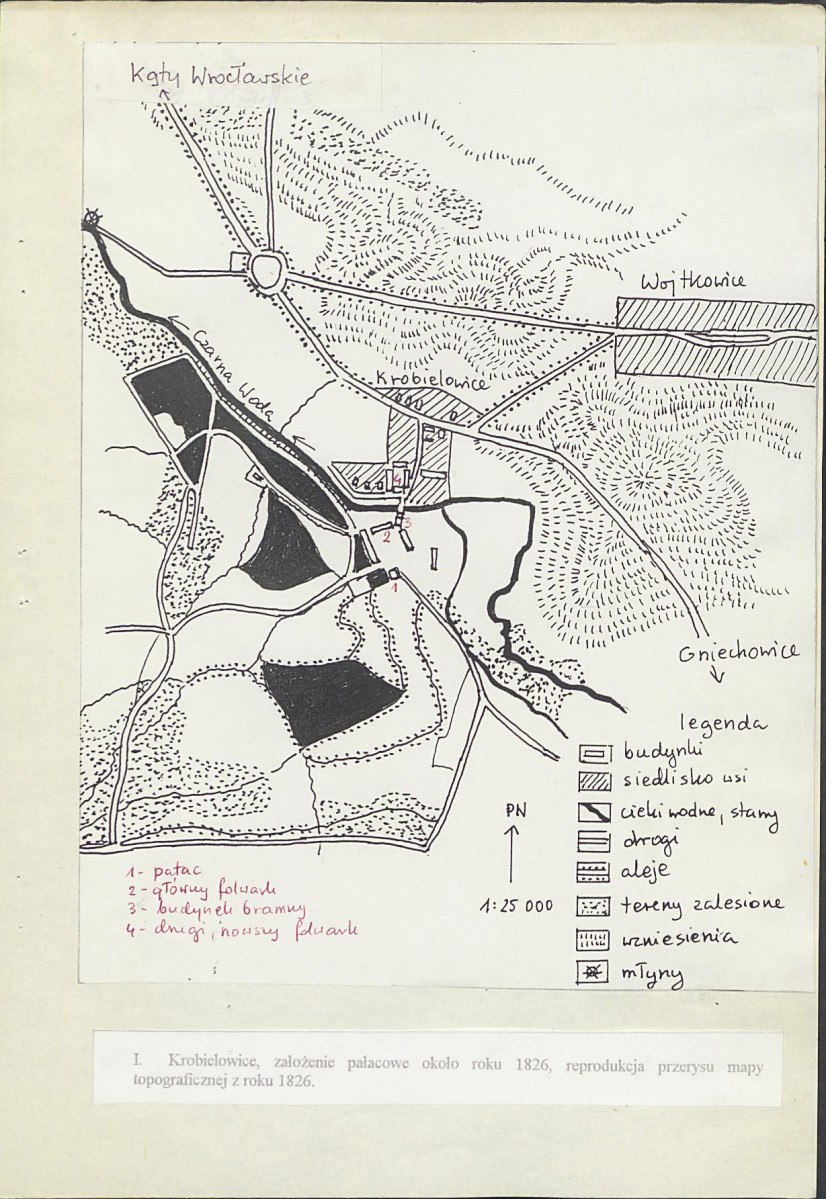 Kąty Wrocławskie
Wojtkowice
Czarna Woda
Krobielowice
4
3
2
1
Gniechowice
legenda
budynki
siedlisko wsi
cieki wodne, stawy
drogi
aleje
tereny zalesione
wzniesienia
młyny
PN
1:25 000
1- pałac
2- główny folwark
3- budynek bramny
4- drugi, nowszy folwark
I. Krobielowice, założenie pałacowe około roku 1826, reprodukcja przerysu mapy
topograficznej z roku 1826.